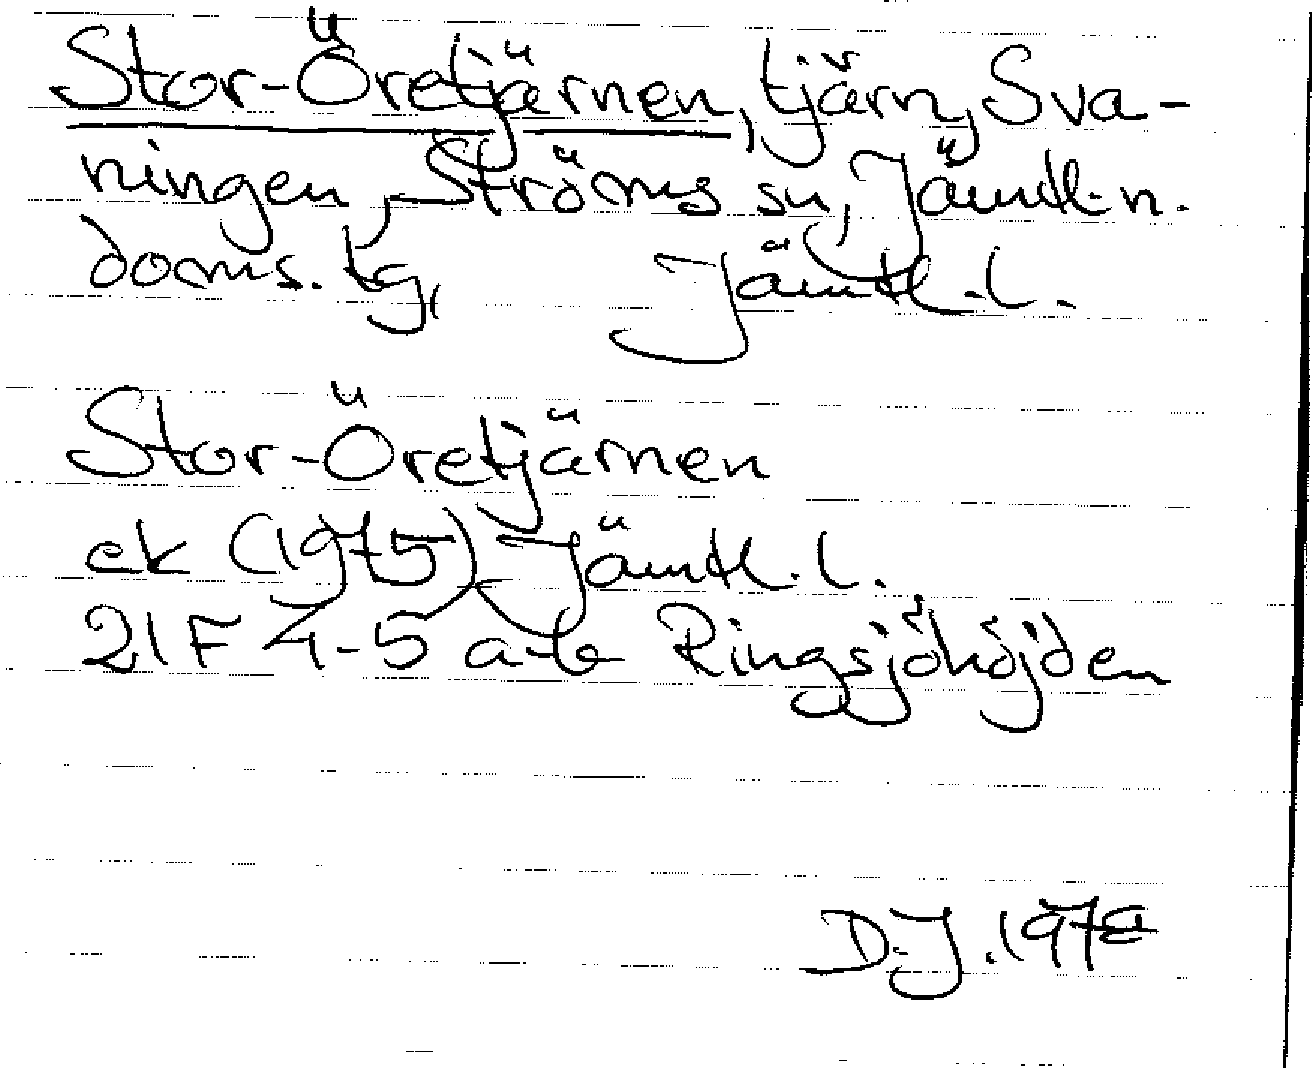 Stor-Öretjärnen, tjärn, Sva-
ningen, Ströms sn, Jämtl. n.
doms. tg, Jämtl. l.
Stor-Öretjärnen
ek (1975) Jämtl. l.
21F 4-5 a-b Ringsjöhöjden
D.J. 1978